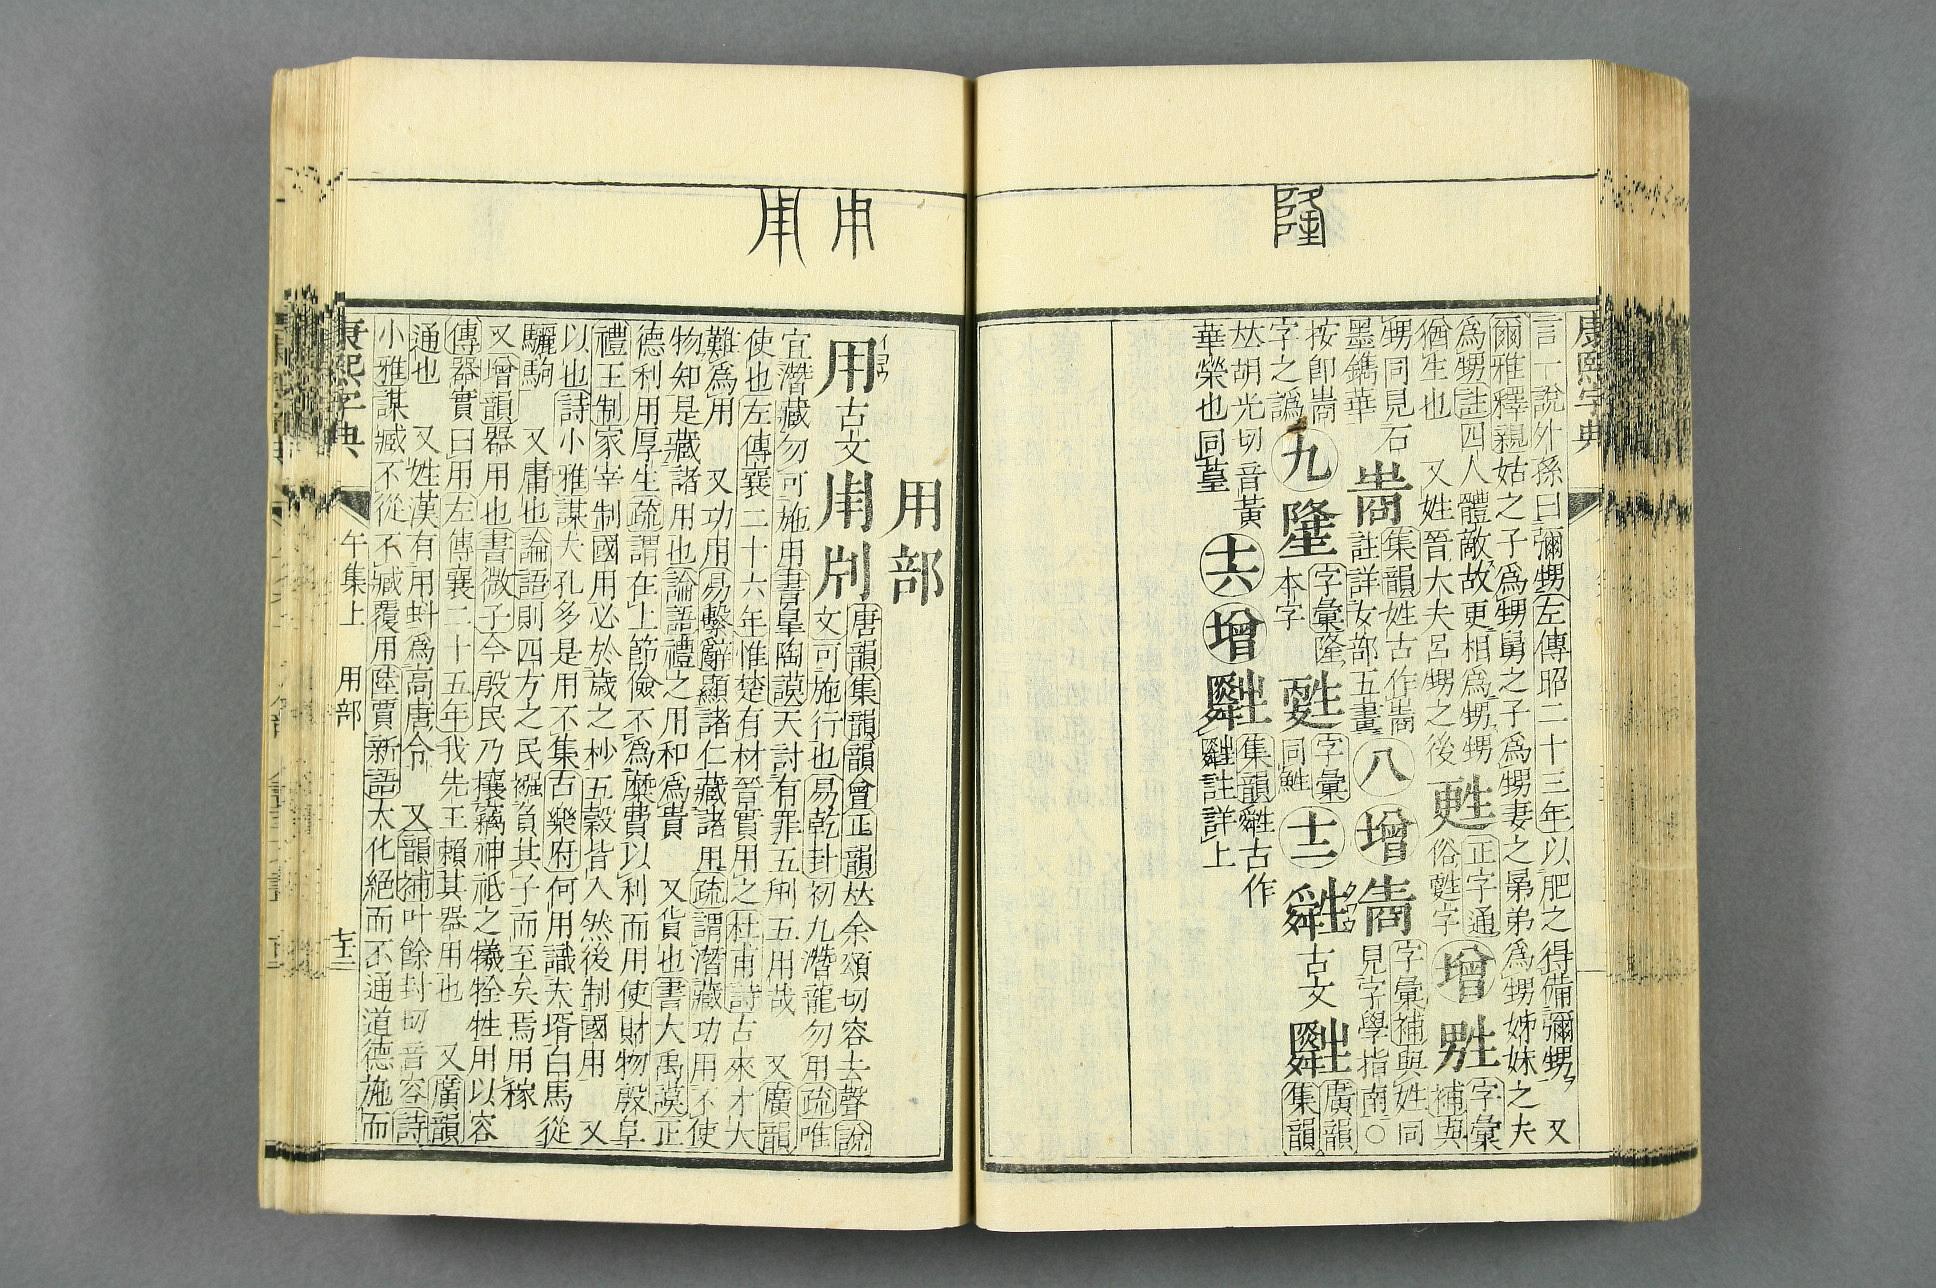 康熙字典
隆
言丁說外孫曰彌甥左傳昭二十三年以肥之得備彌甥 又
爾雅釋親姑之子爲甥舅之子爲甥妻之晜弟爲甥姊妹之夫
爲甥註四人體敵故更相爲甥甥
猶生也 又姓晉大夫呂甥之後
甦 正字通
俗甦字
增 字彙
補與
甥同見石
墨鐫華
集韻姓古作
註詳女部五畫
八 增 字彙補與姓同
見字學指南○
按卽
字之譌
九 隆 字彙隆
本字
甦 字彙
同甦
十二 古文 廣韻
集韻
𠀤胡光切音黃
華榮也同葟
十六 增 集韻 古作
註詳上
用部
用 古文 𤰃 唐韻集韻韻會正韻𠀤余頌切容去聲說
文可施行也易乾卦初九潛龍勿用疏唯
宜潛藏勿可施用書臯陶謨天討有罪五刑五用哉 又廣韻
使也左傳襄二十六年惟楚有材晉實用之杜甫詩古來才大
難爲用 又功用易繫辭顯諸仁藏諸用疏謂潛藏功用不使
物知是藏諸用也論語禮之用和爲貴 又貨也書大禹謨正
德利用厚生疏謂在上節儉不爲糜費以利而用使財物殷阜
禮王制冢宰制國用必於歲之杪五穀皆入然後制國用 又
以也詩小雅謀夫孔多是用不集古樂府何用識夫壻白馬從
驪駒 又庸也論語則四方之民襁負其子而至矣焉用稼
又增韻器用也書微子今殷民乃攘竊神祗之犧牷牲用以容
傳器實曰用左傳襄二十五年我先王賴其器用也 又廣韻
通也 又姓漢有用蚪爲高唐令 又韻補叶餘封切音容詩
小雅謀臧不從不臧覆用陸賈新語大化絕而不通道德施而
康熙字典 午集上 用部 十五